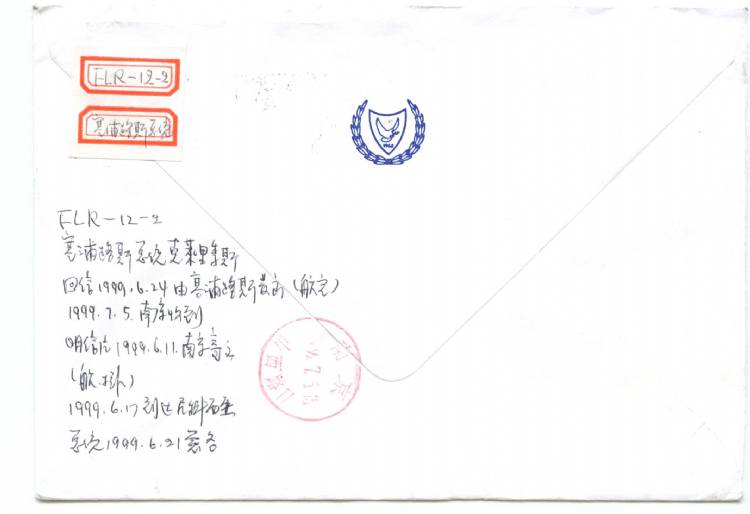 FLR-12-2
塞浦路斯总统
1960
FLR-12-2
塞浦路斯总统克莱里季斯
回信1999.6.24由塞浦路斯发出(航空)
1999.7.5.南京收到
明信片1999.6.11.南京寄出
(航.挂)
1999.6.17到达尼科西亚
总统1999.6.21签名
南京
99.7.5.18
山西路